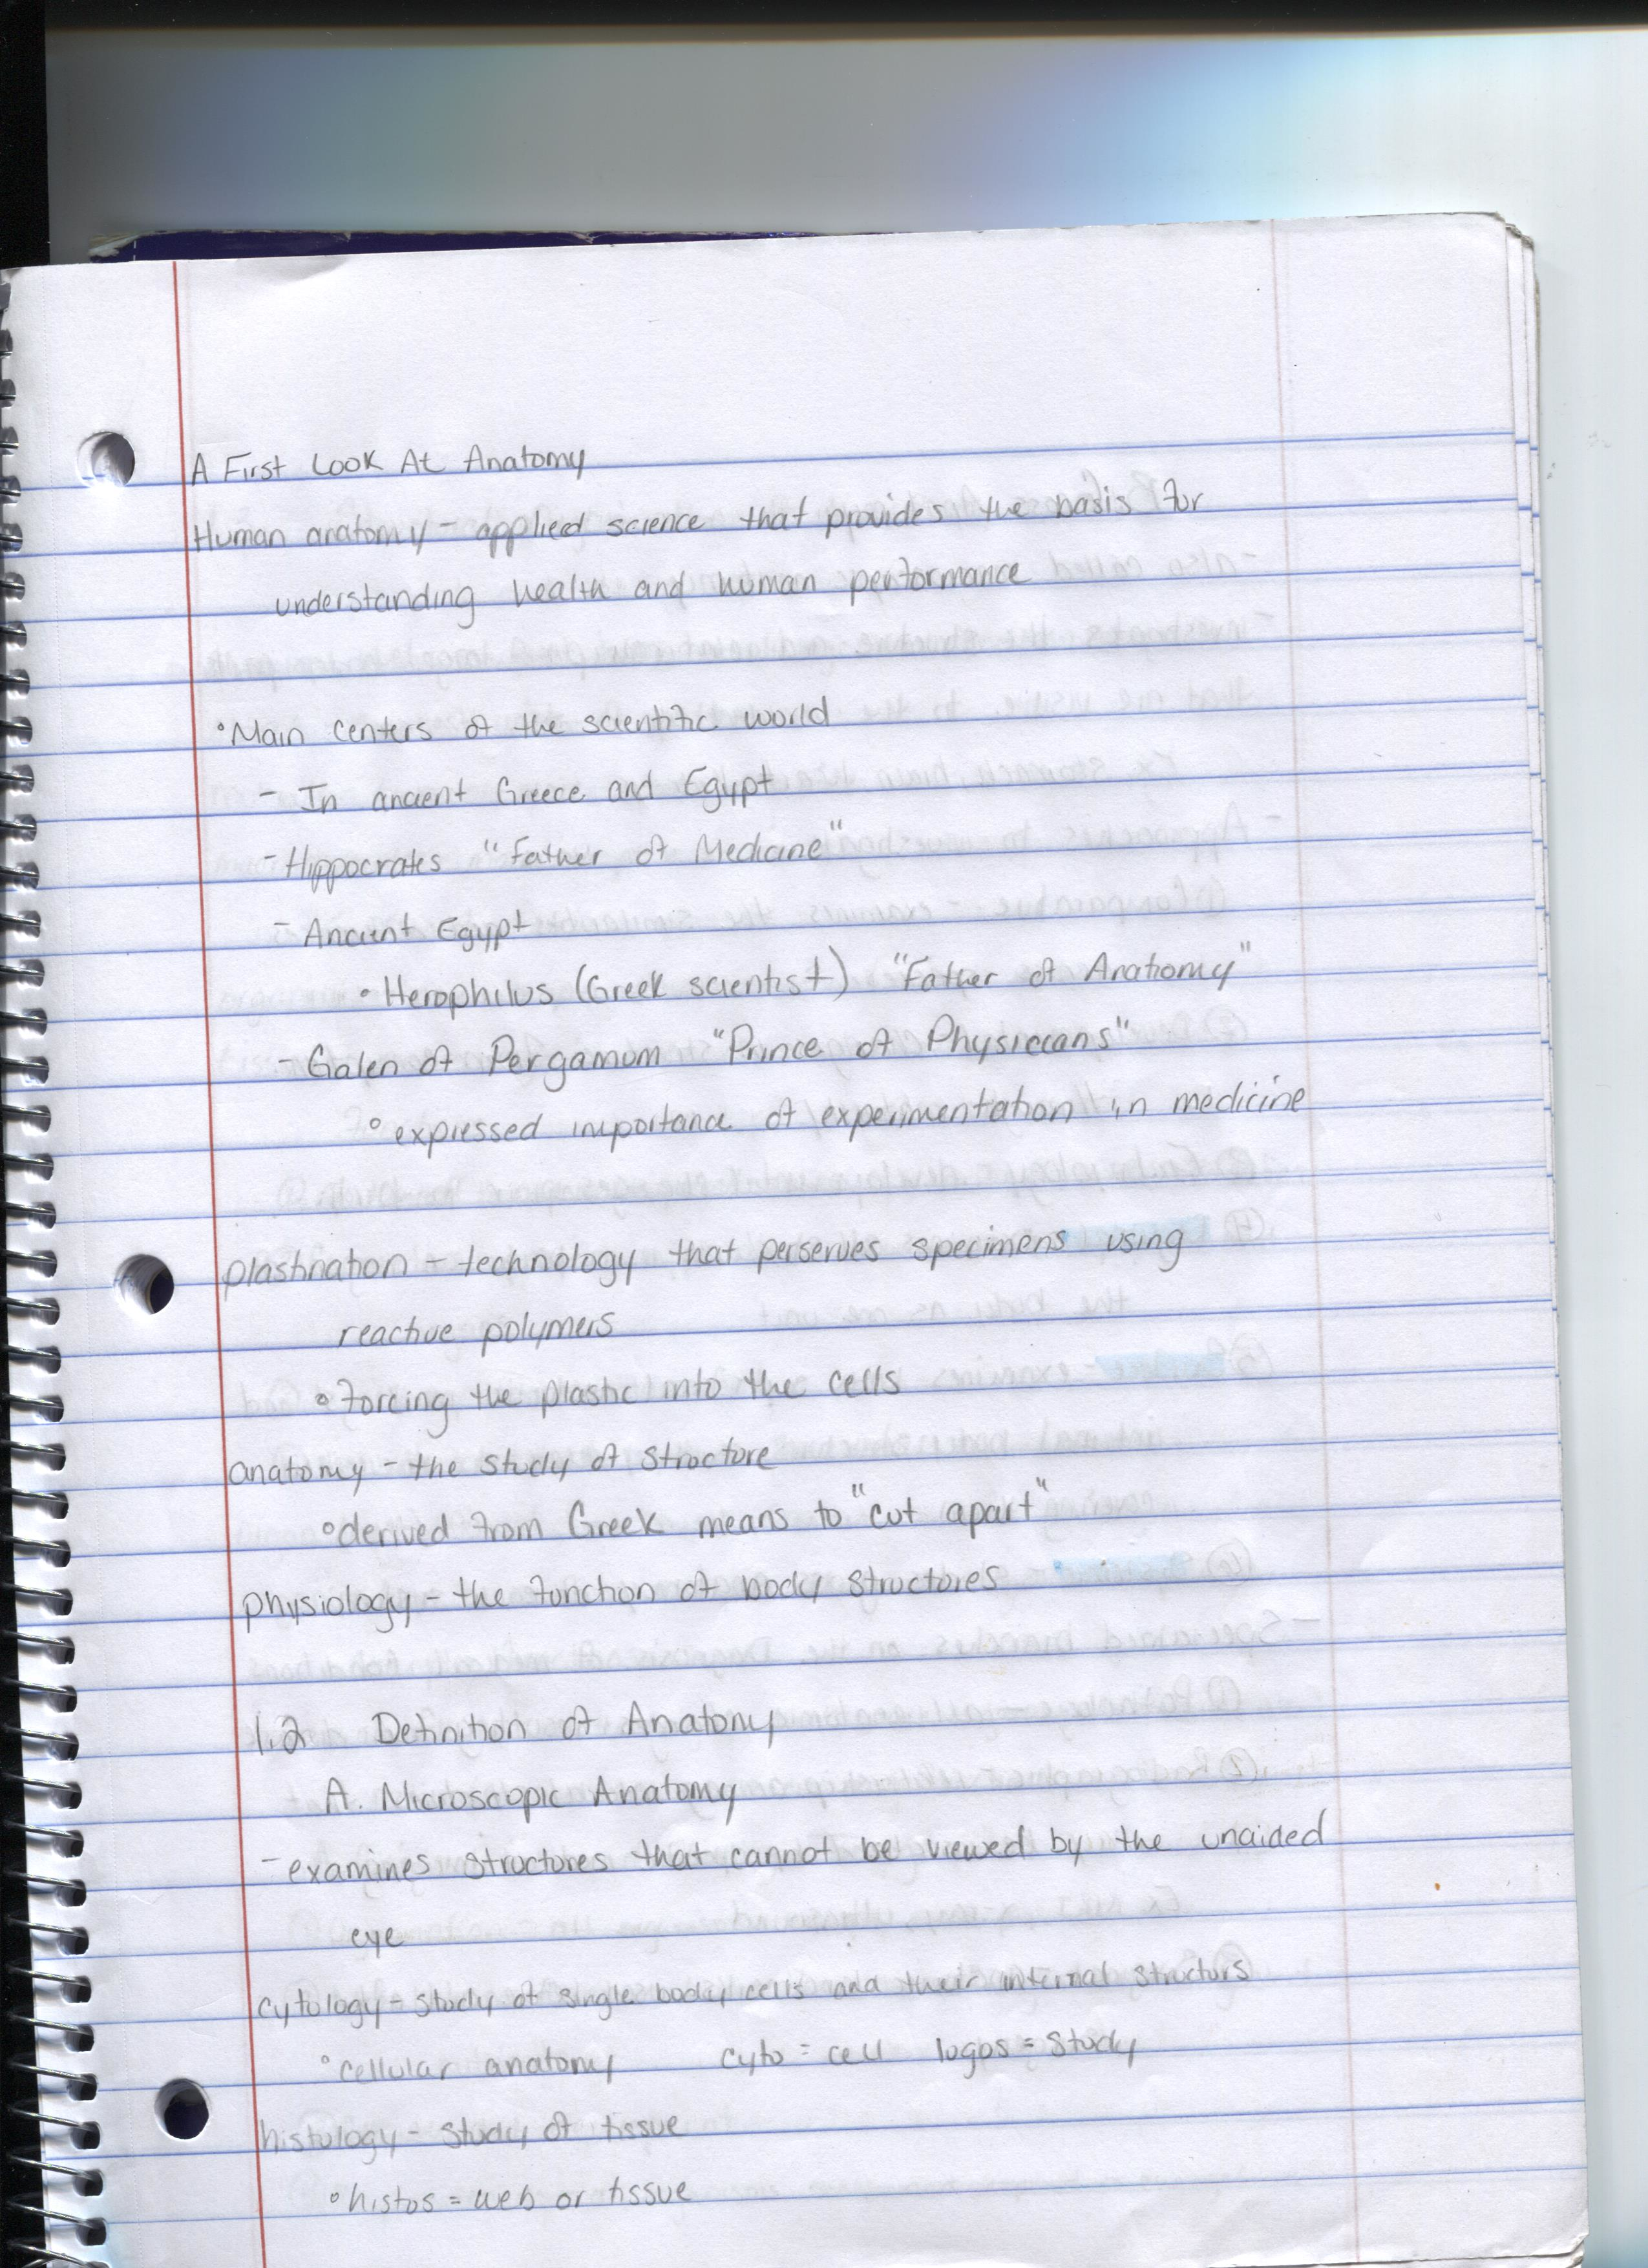 A First Look At Anatomy
Human anatomy - applied science that provides the basis for
understanding health and human performance
• Main centers of the scientific world
- In ancient Greece and Egypt
- Hippocrates "Father of Medicine"
- Ancient Egypt
• Herophilus (Greek scientist) "Father of Anatomy"
- Galen of Pergamum "Prince of Physicians"
° expressed importance of experimentation in medicine
plastination - technology that perserves specimens using
reactive polymers
° forcing the plastic into the cells
anatomy - the study of structure
° derived from Greek means to "cut apart"
physiology - the function of body structures
1.2 Definition of Anatomy
A. Microscopic Anatomy
- examines structures that cannot be viewed by the unaided
eye
cytology - study of single body cells and their internal structurs
° cellular anatomy cyto = cell logos = study
histology - study of tissue
° histos = web or tissue